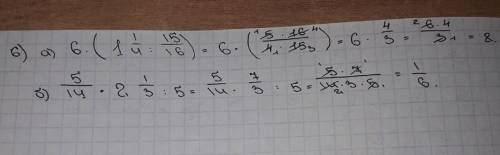 6) а) 6·(1 1/4 : 15/16) = 6·(¹5·16⁴ / 4₁·15₃) = 6·4/3 = ²6·4 / 3₁ = 8.
б) 5/14 · 2 1/3 : 5 = 5/14 · 7/3 : 5 = 5·7¹ / 14₂·3·5₁ = 1/6.